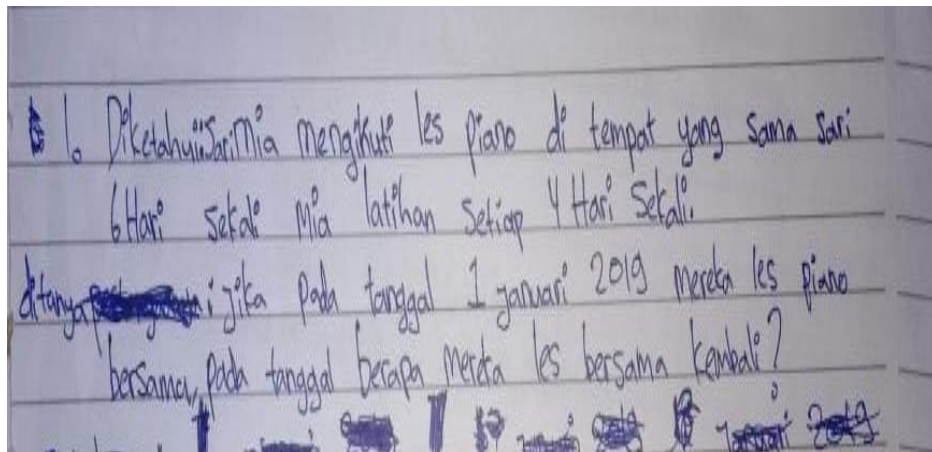 1. Diketahui: Sari Mia mengikuti les piano di tempat yang sama sari
6 Hari sekali Mia latihan setiap 4 Hari Sekali.
ditanya : jika pada tanggal 1 januari 2019 mereka les piano
bersama, pada tanggal berapa mereka les bersama kembali?